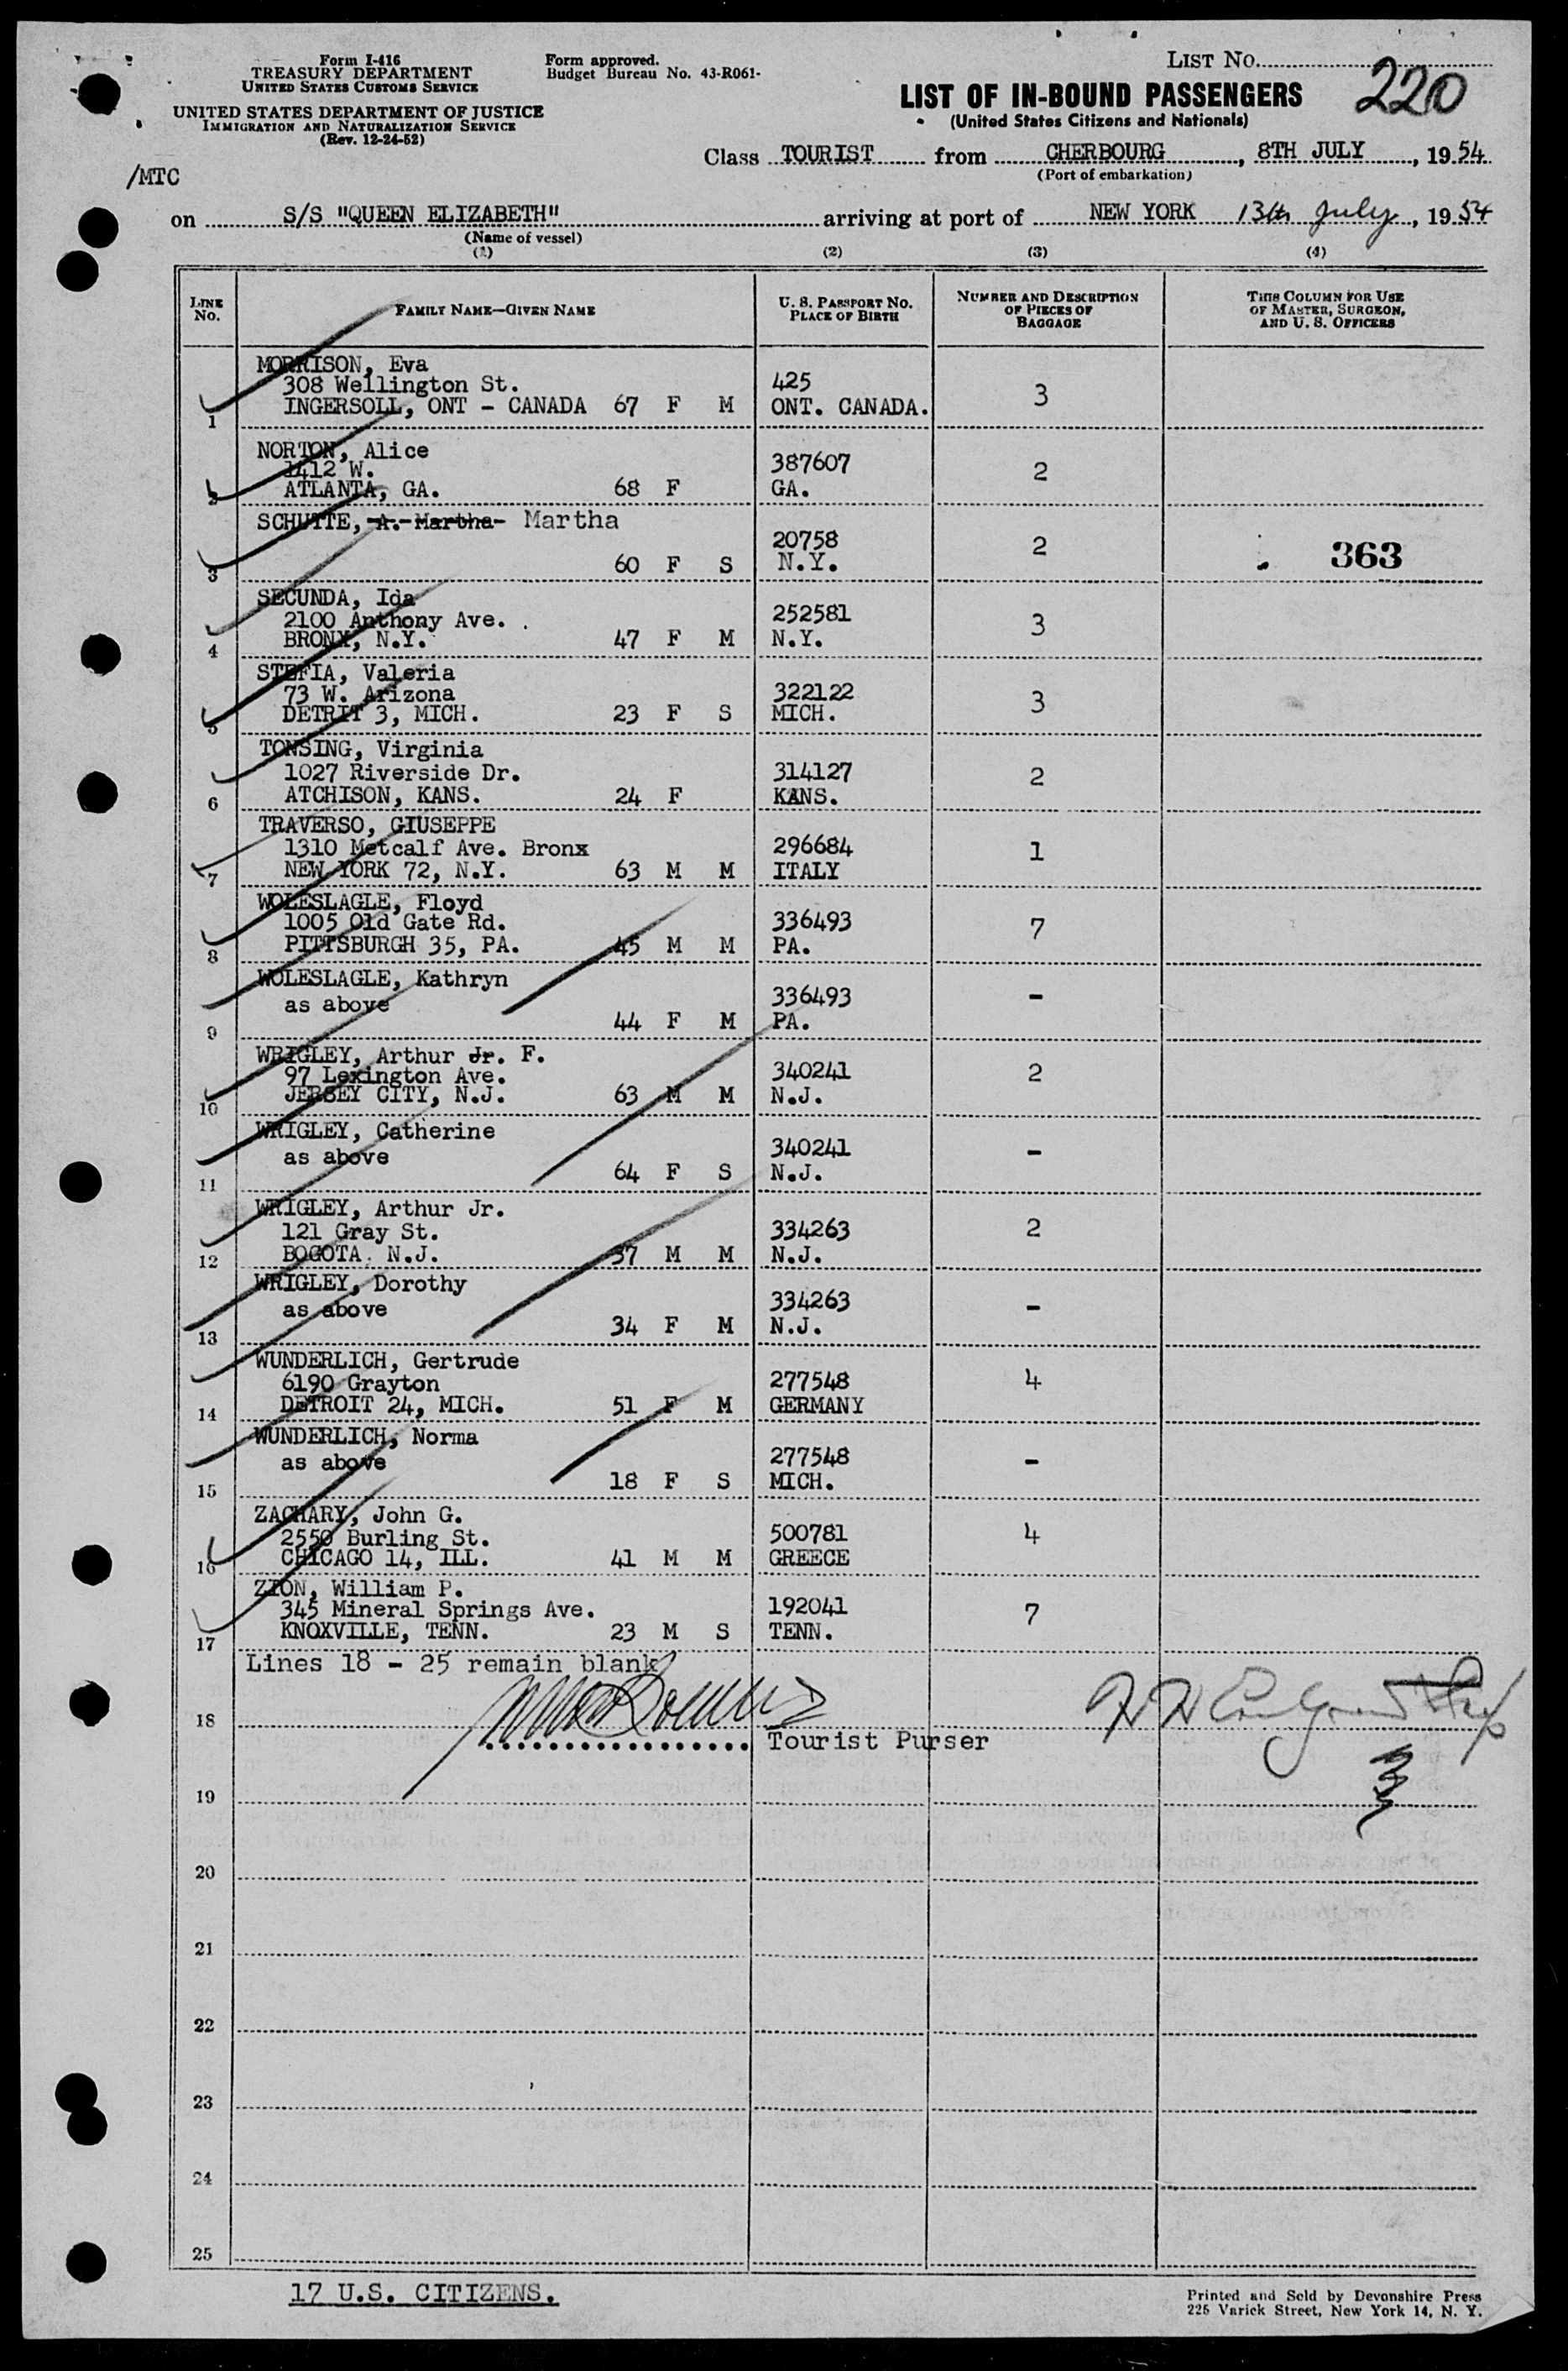 Form I-416
TREASURY DEPARTMENT
UNITED STATES CUSTOMS SERVICE
UNITED STATES DEPARTMENT OF JUSTICE
IMMIGRATION AND NATURALIZATION SERVICE
(Rev. 12-24-52)
Form approved.
Budget Bureau No. 43-R061-
LIST No. 220
LIST OF IN-BOUND PASSENGERS
(United States Citizens and Nationals)
Class TOURIST from CHERBOURG, 8TH JULY, 1954
(Port of embarkation)
/MTC
on S/S "QUEEN ELIZABETH" arriving at port of NEW YORK 13th July, 1954
(Name of vessel)
(1) (2) (3) (4)
LINE No. FAMILY NAME—GIVEN NAME U. S. PASSPORT No. PLACE OF BIRTH NUMBER AND DESCRIPTION OF PIECES OF BAGGAGE THIS COLUMN FOR USE OF MASTER, SURGEON, AND U. S. OFFICERS
MORRISON, Eva
308 Wellington St. 425
1 INGERSOLL, ONT - CANADA 67 F M ONT. CANADA. 3
NORTON, Alice
1412 W. 387607
2 ATLANTA, GA. 68 F GA. 2
SCHUTTE, A. Martha Martha
20758
3 60 F S N.Y. 2 363
SECUNDA, Ida
2100 Anthony Ave. 252581
4 BRONX, N.Y. 47 F M N.Y. 3
STEFIA, Valeria
73 W. Arizona 322122
5 DETRIT 3, MICH. 23 F S MICH. 3
TONSING, Virginia
1027 Riverside Dr. 314127
6 ATCHISON, KANS. 24 F KANS. 2
TRAVERSO, GIUSEPPE
1310 Metcalf Ave. Bronx 296684
7 NEW YORK 72, N.Y. 63 M M ITALY 1
WOLESLAGLE, Floyd
1005 Old Gate Rd. 336493
8 PITTSBURGH 35, PA. 45 M M PA. 7
WOLESLAGLE, Kathryn
as above 336493
9 44 F M PA. -
WRIGLEY, Arthur Jr. F.
97 Lexington Ave. 340241
10 JERSEY CITY, N.J. 63 M M N.J. 2
WRIGLEY, Catherine
as above 340241
11 64 F S N.J. -
WRIGLEY, Arthur Jr.
121 Gray St. 334263
12 BOGOTA. N.J. 37 M M N.J. 2
WRIGLEY, Dorothy
as above 334263
13 34 F M N.J. -
WUNDERLICH, Gertrude
6190 Grayton 277548
14 DETROIT 24, MICH. 51 F M GERMANY 4
WUNDERLICH, Norma
as above 277548
15 18 F S MICH. -
ZACHARY, John G.
2550 Burling St. 500781
16 CHICAGO 14, ILL. 41 M M GREECE 4
ZION, William P.
345 Mineral Springs Ave. 192041
17 KNOXVILLE, TENN. 23 M S TENN. 7
Lines 18 - 25 remain blank
18
Tourist Purser
19
20
21
22
23
24
25
17 U.S. CITIZENS.
Printed and Sold by Devonshire Press
225 Varick Street, New York 14, N. Y.